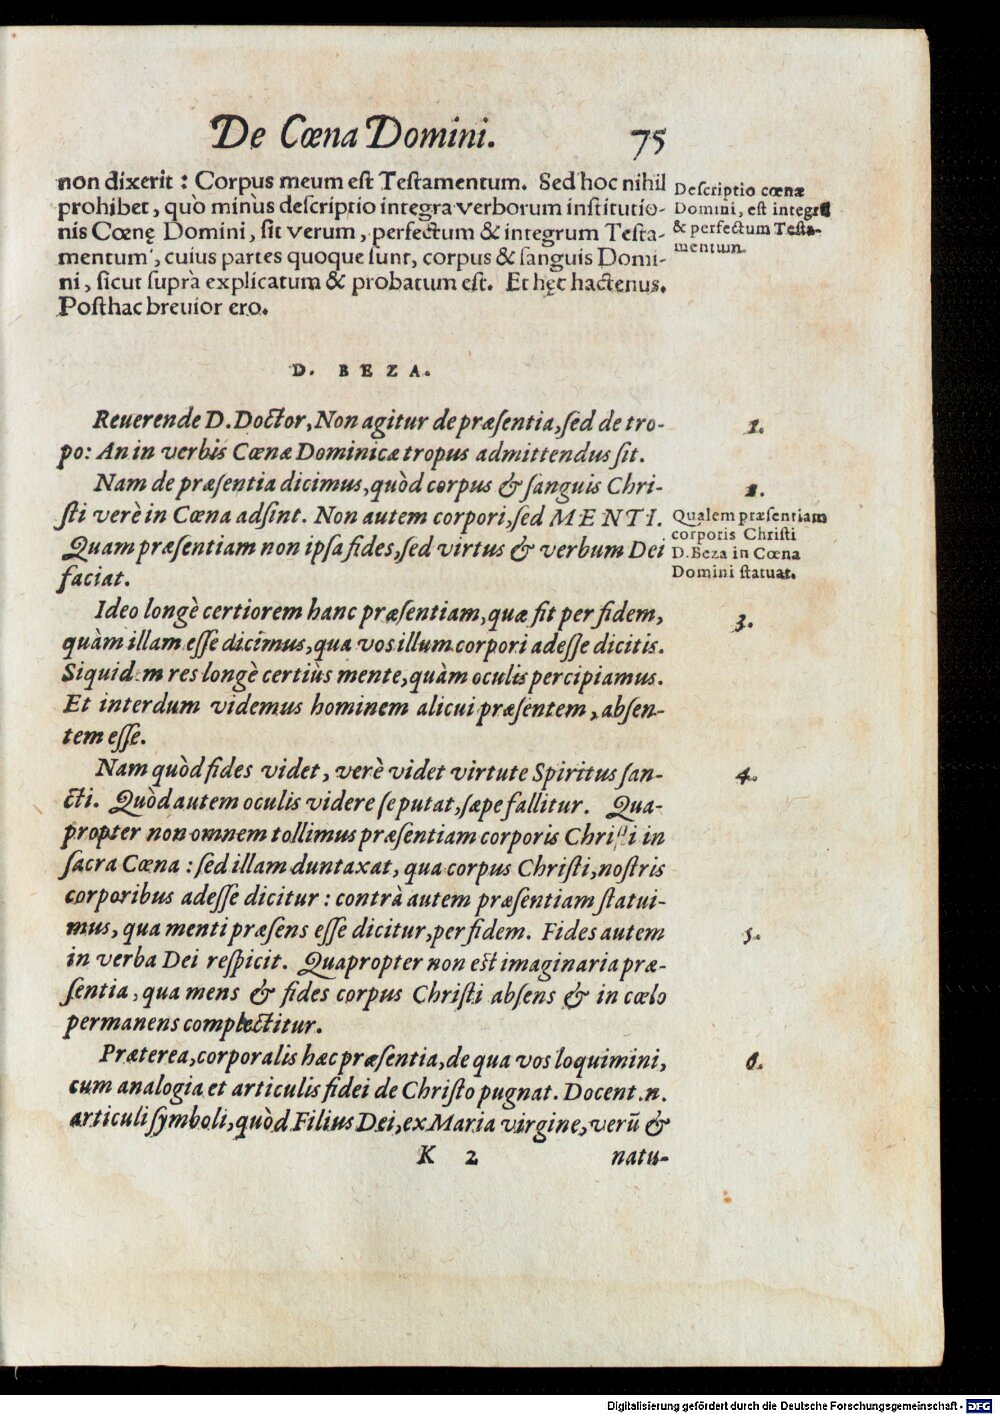 De Cœna Domini. 75
non dixerit : Corpus meum est Testamentum. Sed hoc nihil
prohibet, quò minùs descriptio integra verborum institutio-
nis Cœnę Domini, sit verum, perfectum & integrum Testa-
mentum, cuius partes quoque sunt, corpus & sanguis Domi-
ni, sicut suprà explicatum & probatum est. Et hęc hactenus.
Posthac breuior ero.
Descriptio cœnæ
Domini, est integrū
& perfectum Testa-
mentum.
D. BEZA.
Reuerende D. Doctor, Non agitur de præsentia, sed de tro-
po: An in verbis Cœnæ Dominicæ tropus admittendus sit.
1.
Nam de præsentia dicimus, quòd corpus & sanguis Chri-
sti verè in Cœna adsint. Non autem corpori, sed MENTI.
Quam præsentiam non ipsa fides, sed virtus & verbum Dei
faciat.
2.
Qualem præsentiam
corporis Christi
D. Beza in Cœna
Domini statuat.
Ideo longè certiorem hanc præsentiam, quæ fit per fidem,
quàm illam esse dicimus, qua vos illum corpori adesse dicitis.
Siquidem res longè certiùs mente, quàm oculis percipiamus.
Et interdum videmus hominem alicui præsentem, absen-
tem esse.
3.
Nam quòd fides videt, verè videt virtute Spiritus san-
cti. Quòd autem oculis videre se putat, sæpe fallitur. Qua-
propter non omnem tollimus præsentiam corporis Christi in
sacra Cœna : sed illam duntaxat, qua corpus Christi, nostris
corporibus adesse dicitur : contrà autem præsentiam statui-
mus, qua menti præsens esse dicitur, per fidem. Fides autem
in verba Dei respicit. Quapropter non est imaginaria præ-
sentia, qua mens & fides corpus Christi absens & in cœlo
permanens complectitur.
4.
5.
Præterea, corporalis hæc præsentia, de qua vos loquimini,
cum analogia et articulis fidei de Christo pugnat. Docent .n.
articuli symboli, quòd Filius Dei, ex Maria virgine, verū &
6.
K 2 natu-
Digitalisierung gefördert durch die Deutsche Forschungsgemeinschaft - DFG